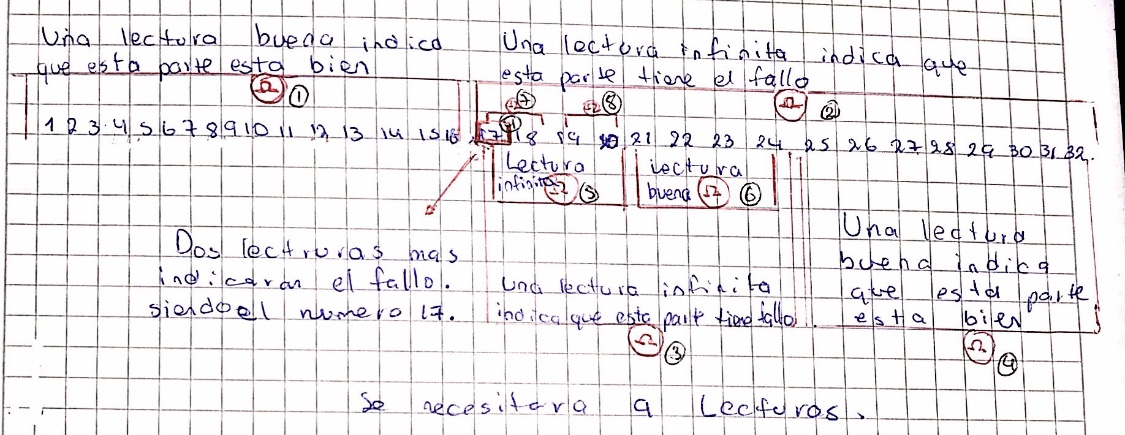 Una lectura buena indica
que esta parte esta bien
Ω 1
Una lectura infinita indica que
esta parte tiene el fallo
Ω 7 Ω 8 Ω 2
1 2 3 4 5 6 7 8 9 10 11 12 13 14 15 16 17 18 19 20 21 22 23 24 25 26 27 28 29 30 31 32.
Lectura
infinita Ω 5
Lectura
buena Ω 6
Dos lectruras mas
indicaran el fallo.
siendo el numero 17.
una lectura infinita
indica que esta part tiene fallo
Ω 3
Una lectura
buena indica
que esta parte
esta bien
Ω 4
Se necesitara 9 Lecturas.